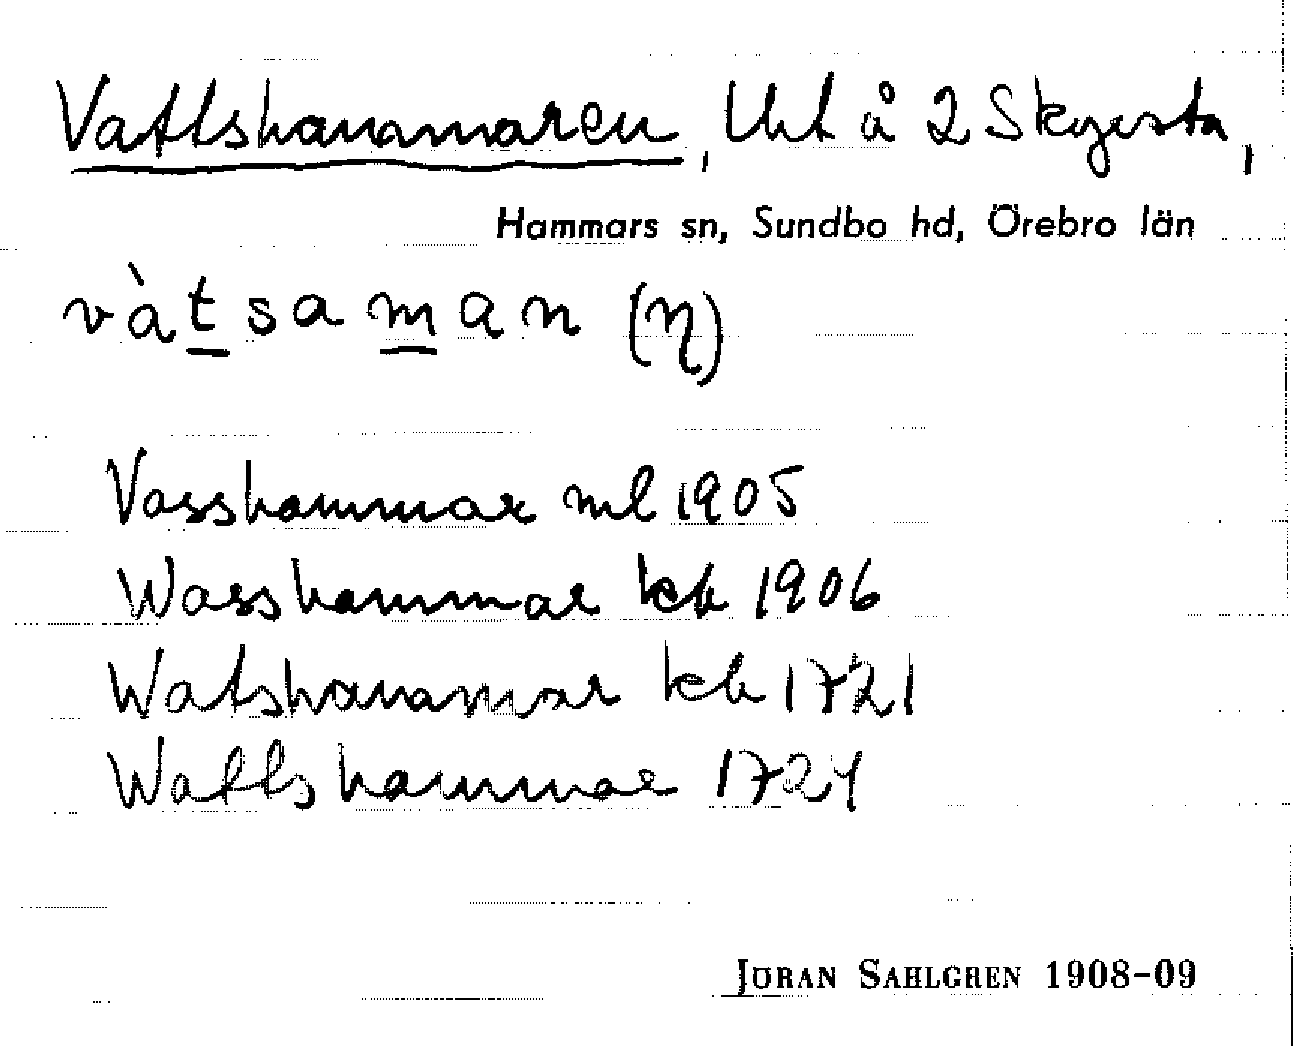 Vattshammaren, Uht å 2 Skyrsta,
Hammars sn, Sundbo hd, Örebro län
vàtsaman (η)
Vasshammar ml 1905
Wasshammar kb 1906
Watshammar kb 1721
Wattshammar 1724
JÖRAN SAHLGREN 1908-09